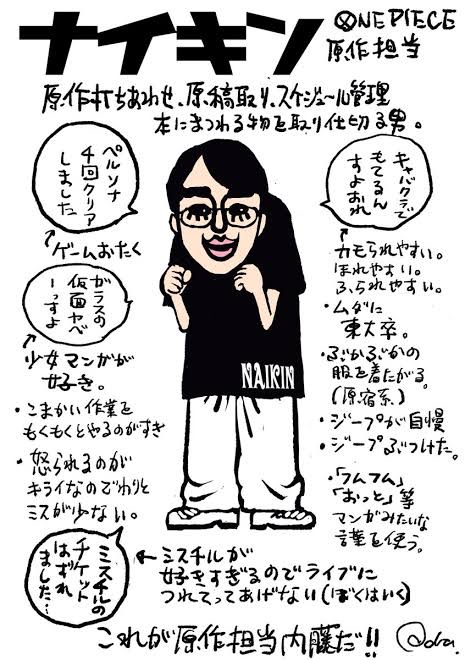 ナイキン
ONE PIECE
原作担当
原作打ちあわせ、原稿取り、スケジュール管理
本にまつわる物を取り仕切る男。
ペルソナ
4回クリア
しました
ゲームおたく
ガラスの
仮面ヤベ
ーっすよ
少女マンガが
好き。
・こまかい作業を
もくもくとやるのがすき
・怒られるのが
キライなのでわりと
ミスが少ない。
ミスチルの
チケット
はずれ
ました…
キャバクラで
もてるん
すよおれ
カモられやすい。
ほれやすい。
ふられやすい。
・ムダに
東大卒。
・ぶかぶかの
服を着たがる。
(原宿系)
・ジープが自慢
・ジープぶつけた。
・「フムフム」
「おっと」等
マンガみたいな
言葉を使う。
NAIKIN
←ミスチルが
好きすぎるのでライブに
つれてってあげない(ぼくはいく)
これが原作担当内藤だ!!